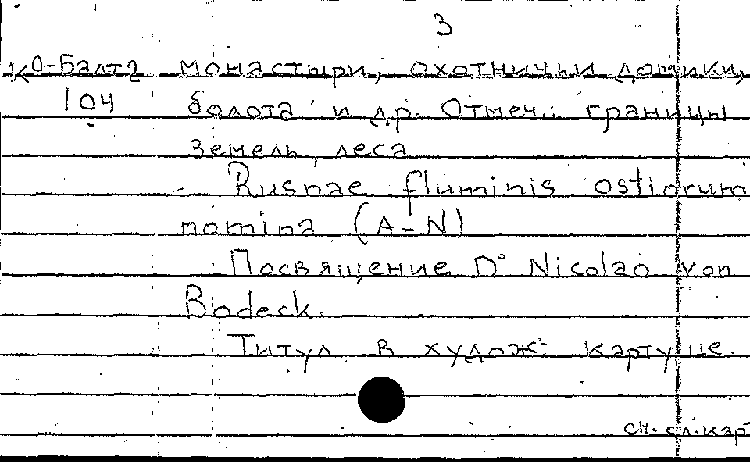 3
КО-Балт2 монастыри, охотничьи домики,
104 болота и др. Отмеч. границы
земель, леса
Rusnae fluminis ostiorum
nomina (A-N)
Посвящение D° Nicolao von
Bodeck.
Титул в худож. картуше.
см. сл. кар